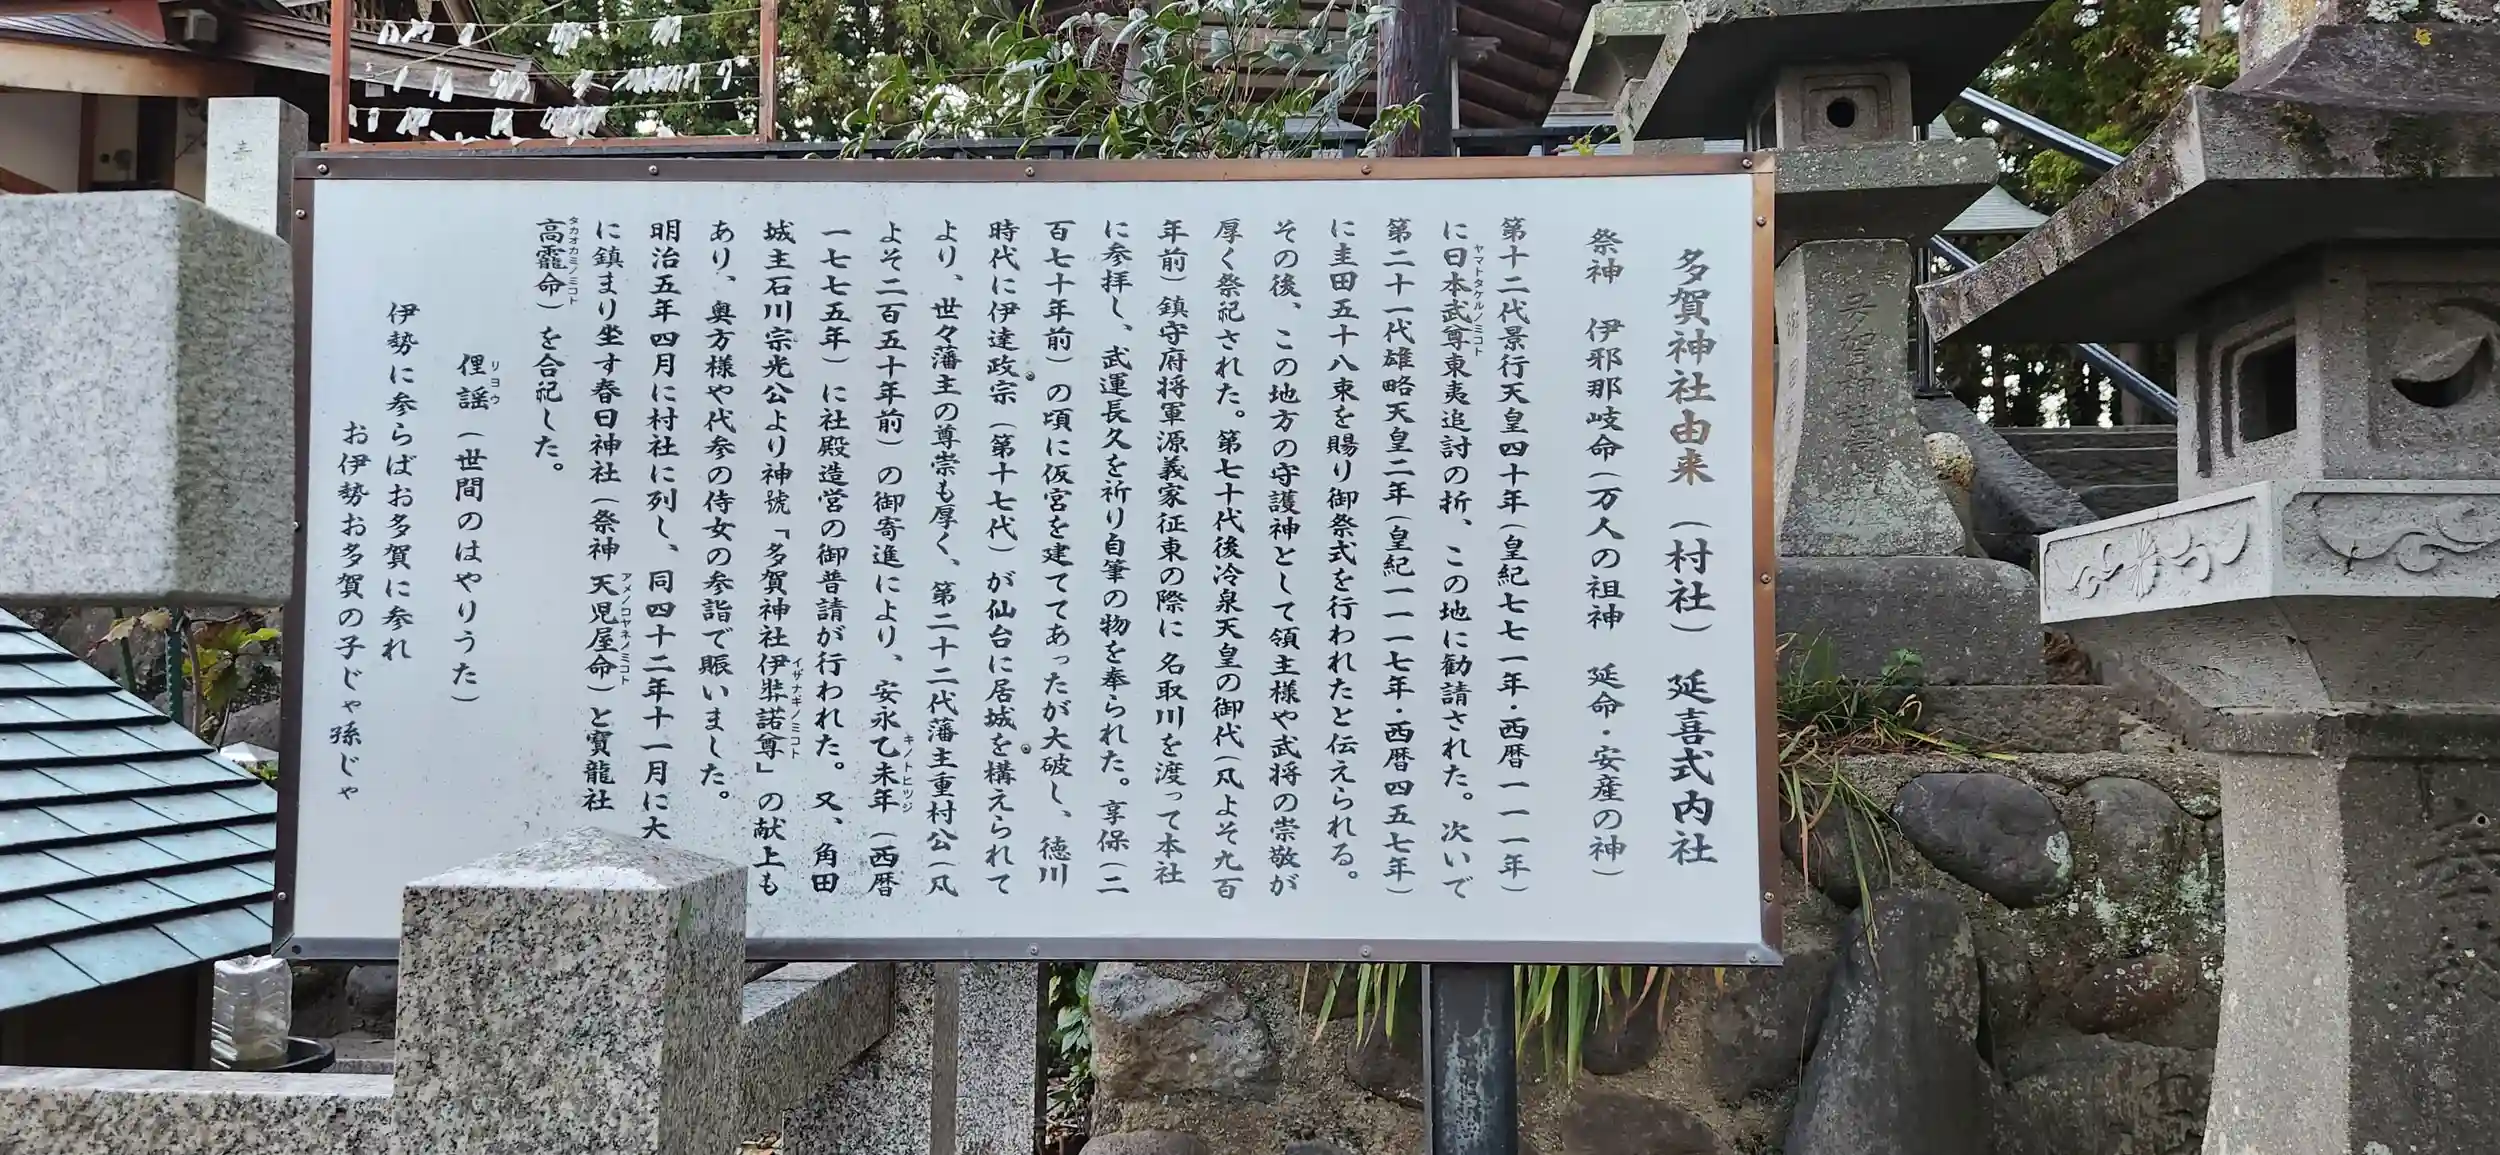 多賀神社由来 (村社) 延喜式内社
祭神 伊邪那岐命(万人の祖神 延命・安産の神)
第十二代景行天皇四十年(皇紀七七一年・西暦一一一年)
に日本武尊東夷追討の折、この地に勧請された。次いで
ヤマトタケルノミコト
第二十一代雄略天皇二年(皇紀一一一七年・西暦四五七年)
に圭田五十八束を賜り御祭式を行われたと伝えられる。
その後、この地方の守護神として領主様や武将の崇敬が
厚く祭祀された。第七十代後冷泉天皇の御代(凡よそ九百
年前)鎮守府将軍源義家征東の際に名取川を渡って本社
に参拝し、武運長久を祈り自筆の物を奉られた。享保(二
百七十年前)の頃に仮宮を建ててあったが大破し、徳川
時代に伊達政宗(第十七代)が仙台に居城を構えられて
より、世々藩主の尊崇も厚く、第二十二代藩主重村公(凡
よそ二百五十年前)の御寄進により、安永乙未年(西暦
キノトヒツジ
一七七五年)に社殿造営の御普請が行われた。又、角田
城主石川宗光公より神號「多賀神社伊弉諾尊」の献上も
イザナギノミコト
あり、奥方様や代参の侍女の参詣で賑いました。
明治五年四月に村社に列し、同四十二年十一月に大
に鎮まり坐す春日神社(祭神 天児屋命)と寶龍社
アメノコヤネノミコト
高龗命)を合祀した。
タカオカミノミコト
俚謡(世間のはやりうた)
リヨウ
伊勢に参らばお多賀に参れ
お伊勢お多賀の子じゃ孫じゃ